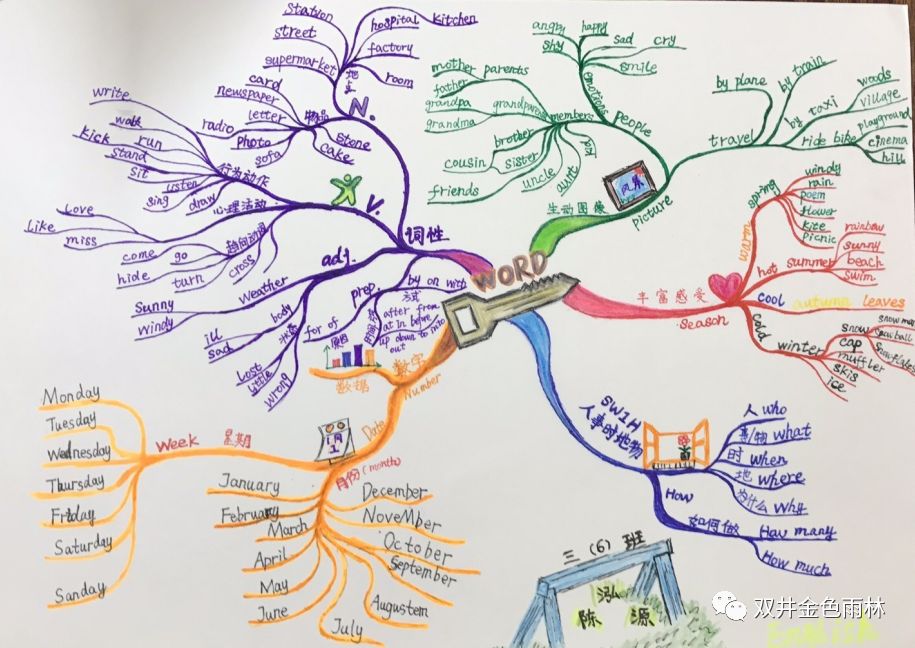 WORD
词性
N.
地点
Station
street
supermarket
hospital
Kitchen
factory
room
物品
card
newspaper
letter
radio
photo
sofa
stone
cake
V.
行为动作
write
walk
run
kick
stand
sit
listen
sing
draw
心理活动
Love
Like
miss
趋向动词
come
go
hide
turn
cross
adj.
Weather
Sunny
windy
body
ill
sad
状态
Lost
little
wrong
prep.
by on with
方式
for of
原因
after from
at in before
up down to into
out
生动图像
风景
picture
people
emotions
angry
happy
shy
sad
cry
smile
members
mother
parents
father
grandpa
grandparents
grandma
brother
cousin
sister
friends
uncle
aunt
travel
by plane
by train
by taxi
ride bike
woods
village
playground
cinema
hill
丰富感受
Season
warm
spring
windy
rain
poem
flower
kite
picnic
hot
summer
rainbow
sunny
beach
swim
cool
autumn
leaves
cold
winter
snow
snow man
snowball
snowflakes
cap
muffler
skis
ice
5W1H
人事时地物
人 who
事/物 what
时 when
地 where
为什么 why
How
如何做
How many
How much
数字
Number
数据
Date
Week 星期
Monday
Tuesday
Wednesday
Thursday
Friday
Saturday
Sanday
月份(month)
January
February
March
April
May
June
July
Augustem
September
October
NoveMber
December
三（6）班
陈泓源
双井金色雨林